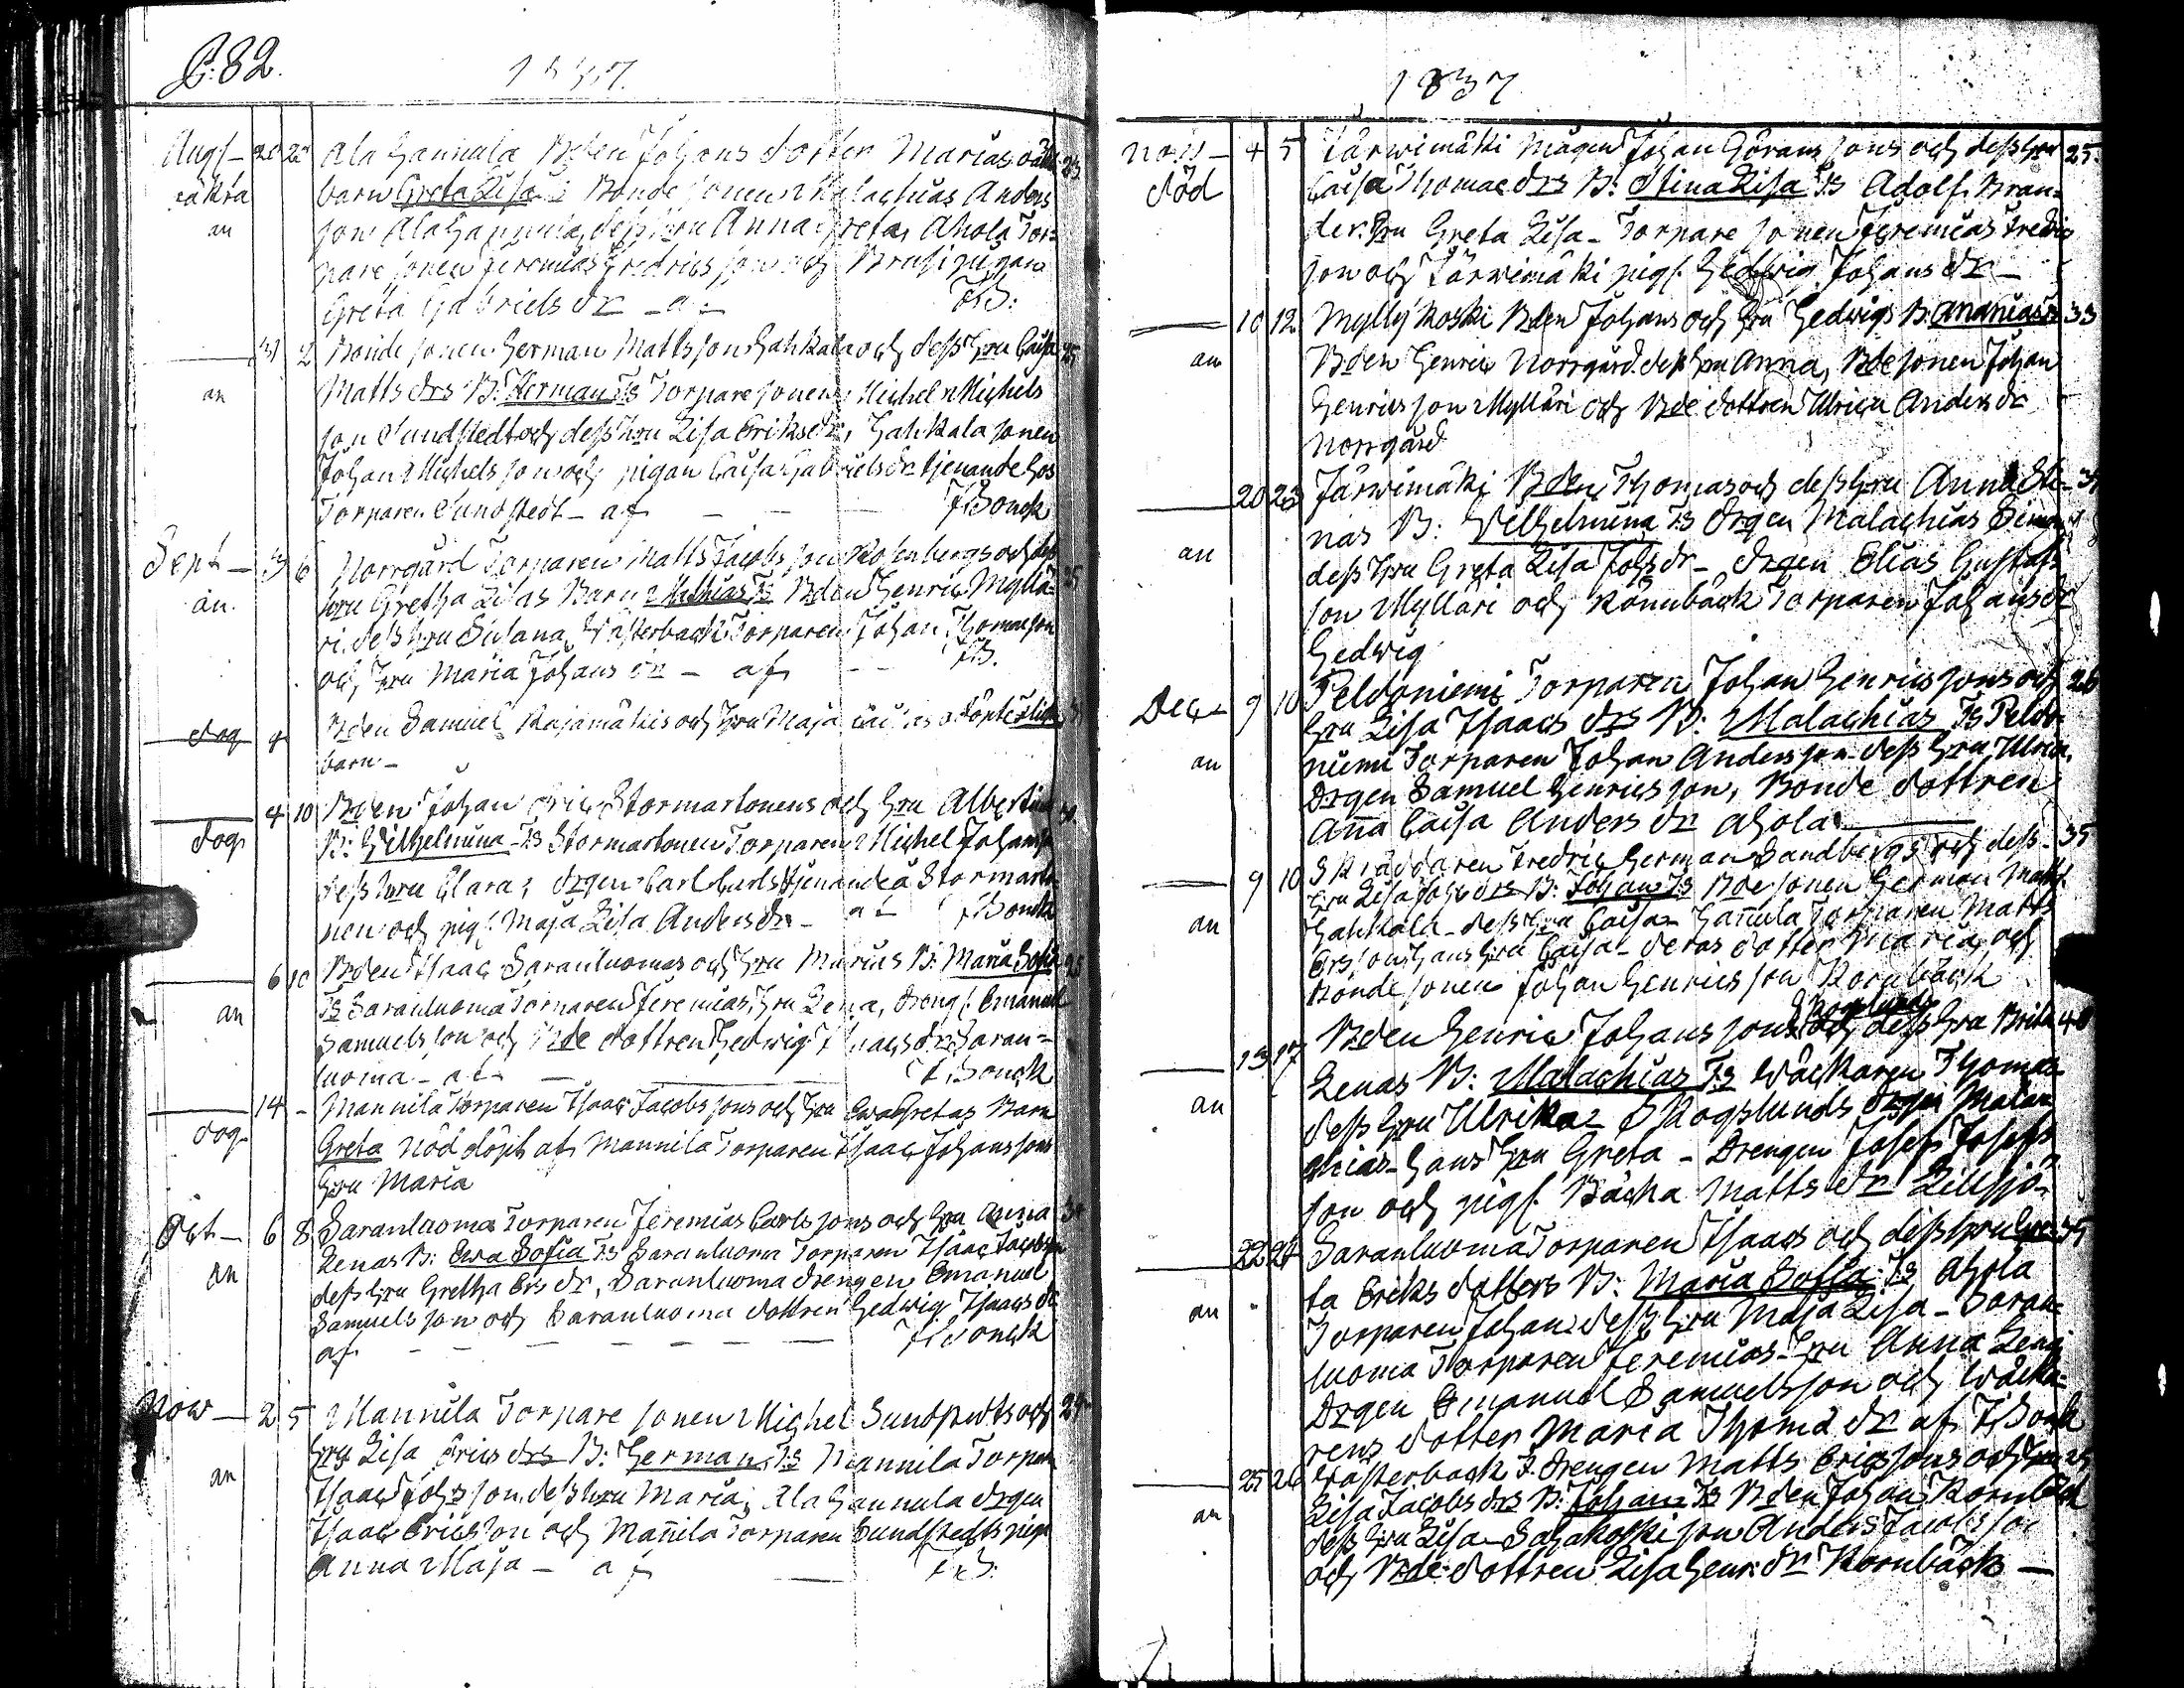 P. 82.
1837.
Augs - 28 29 Ala Hannula Bden Johans dotter Marias oäkta 23
oäkta barn Greta Lisa Bondesonen Malachias Anders
an son Ala Hannula, dess hru Anna Greta, Ahola Tor-
paresonen Jeremias Fredricsson och pigan
Greta Gabriels dr - af FB.
31 2 Bondesonen Herman Mattsson Hahkala och dess hru Caisa 25
an Matts drs B: Herman Ts Torparesonen Michel Michels
son Sundstedt och dess hru Lisa Eriksdr, Hahkala sonen
Johan Michelsson och pigan Caisa Gabrielsdr tjenande hos
Torparen Sundstedt - af - - - FBonck
Sept - 3 6 Norrgård Torparen Matts Jacobsson Rosenbergs och dess
an. hru Gretha Lisas Barn Mathias Ts Bden Henric Myllä- 25
ri, dess hru Susana, Wästerback Torparen Johan Thomasson
och hru Maria Johans dr - af - - FB.
dog 4 Bden Samuel Rajamäkis och hru Maja Caisas odöpte
barn -
4 10 Bden Johan Eric Stormartonens och hru Albertinas
dog B: Wilhelmina Ts Stormartonen Torparen Michel Johans
dess hru Clara, drgen Carl Carls tjenande å Stormarto-
nen och pigs. Maja Lisa Anders dr - af FBonck
6 10 Bden Isaac Saranluomas och hru Marias B: Maria Sofia
an Ts Saranluoma Torparen Jeremias, hru Lena, drengs. Emanuel
Samuelsson och Bde dottren Hedwig Isaacs dr Saran=
luoma - af - FBonck
14 - Mannila Torparen Isaac Jacobssons och hru Ewa Gretas Barn
dog Greta nöddöpt af Mannila Torparen Isaac Johanssons
hru Maria
Oct - 6 8 Saranluoma Torparen Jeremias Carlssons och hru Anna
an Lenas B: Ewa Sofia Ts Saranluoma Torparen Isaac Jacobsson
dess hru Gretha Ers dr, Saranluoma drengen Emanuel
Samuelsson och Saranluoma dottren Hedwig Isaacs dr
af - - - - - - FBonck
Now - 2 5 Mannila Torparesonen Michel Sundstedts och
an hru Lisa Erics drs B: Herman Ts Mannila Torparen
Isaac Johsson, dess hru Maria, Ala Hannula drgen
Isaac Ericsson och Mañila Torparen Sundstedts piga
Anna Maja - af - FB.
1837
Now - 4 5 Järwimäki Mågen Johan Göranssons och dess hru 25
död Caisa Thomae drs B: Stina Lisa Ts Adolf Bran-
der, hru Greta Lisa - Torparesonen Jeremias Fredric
son och Järwimäki pigs. Hedwig Johans dr -
10 12 Mylly Koski Bden Johans och hru Hedwigs B: Ananias Ts 33
an Bden Henric Norrgård, dess hru Anna, Bdesonen Johan
Henricsson Mylläri och Bde dottren Ulrica Anders dr
Norrgård
20 23 Järwimäki Bden Thomas och dess hru Anna Sti-
an nas B: Wilhelmina Ts drgen Malachias
dess hru Greta Lisa Johs dr - drgen Elias Gustaf-
son Mylläri och Rönnback Torparen Johans dr
Hedwig
Dec - 9 10 Peldoniemi Torparen Johan Henricssons och 26
an hru Lisa Isaacs drs B: Malachias Ts Peldo-
niemi Torparen Johan Andersson, dess hru Ulrica,
Drgen Samuel Henricsson, Bonde dottren
Aña Caisa Anders dr Ahola -
9 10 Skräddaren Fredric Herman Sandbergs och dess - 35
an hru Lisa Johs drs B: Johan Ts Bdesonen Herman Matts
Hahkala - dess hru Caisa - Hañula Torparen Matts
Ersson, hans hru Caisa - deras dotter Maria, och
Bondesonen Johan Henricsson Kornback
13 17 Bden Henric Johanssons Skogslunds och dess hru Brita 40
an Lenas B: Malachias Ts Wäckaren Thomas
dess hru Ulrika - Skogslunds drgen Mala-
chias - hans hru Greta - Drengen Josef Josefs
son och pigs. Matts dr Lillsjö-
22 24 Saranluoma Torparen Isaacs och dess hru Gre- 35
an ta Eriks dotters B: Maria Sofia Ts Ahola
Torparen Johan, dess hru Maja Lisa - Saran-
luoma Torparen Jeremias - hru Anna Lena
Drgen Emanuel Samuelsson och Wäcka-
rens dotter Maria Thoma dr af FBonck
25 26 Wästerback F. drengen Matts Ericssons och hru 25
an Lisa Jacobs drs B: Johan Ts Bden Johan Kornback
dess hru Lisa - Sahakoski son Anders Jacobsson
och Bde dottren Lisa Henr: dr Kornback -